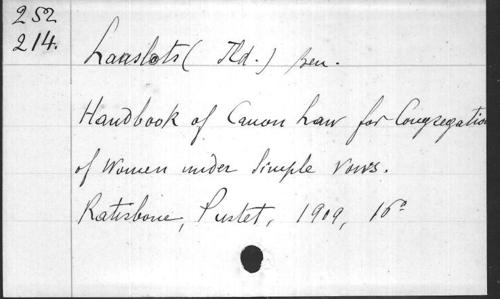 252
214.
Lanslots ( Ild. ) ben.
Handbook of Canon Law for Congregation
of Women under Simple Vows.
Ratisbone, Pustet, 1909, 16°